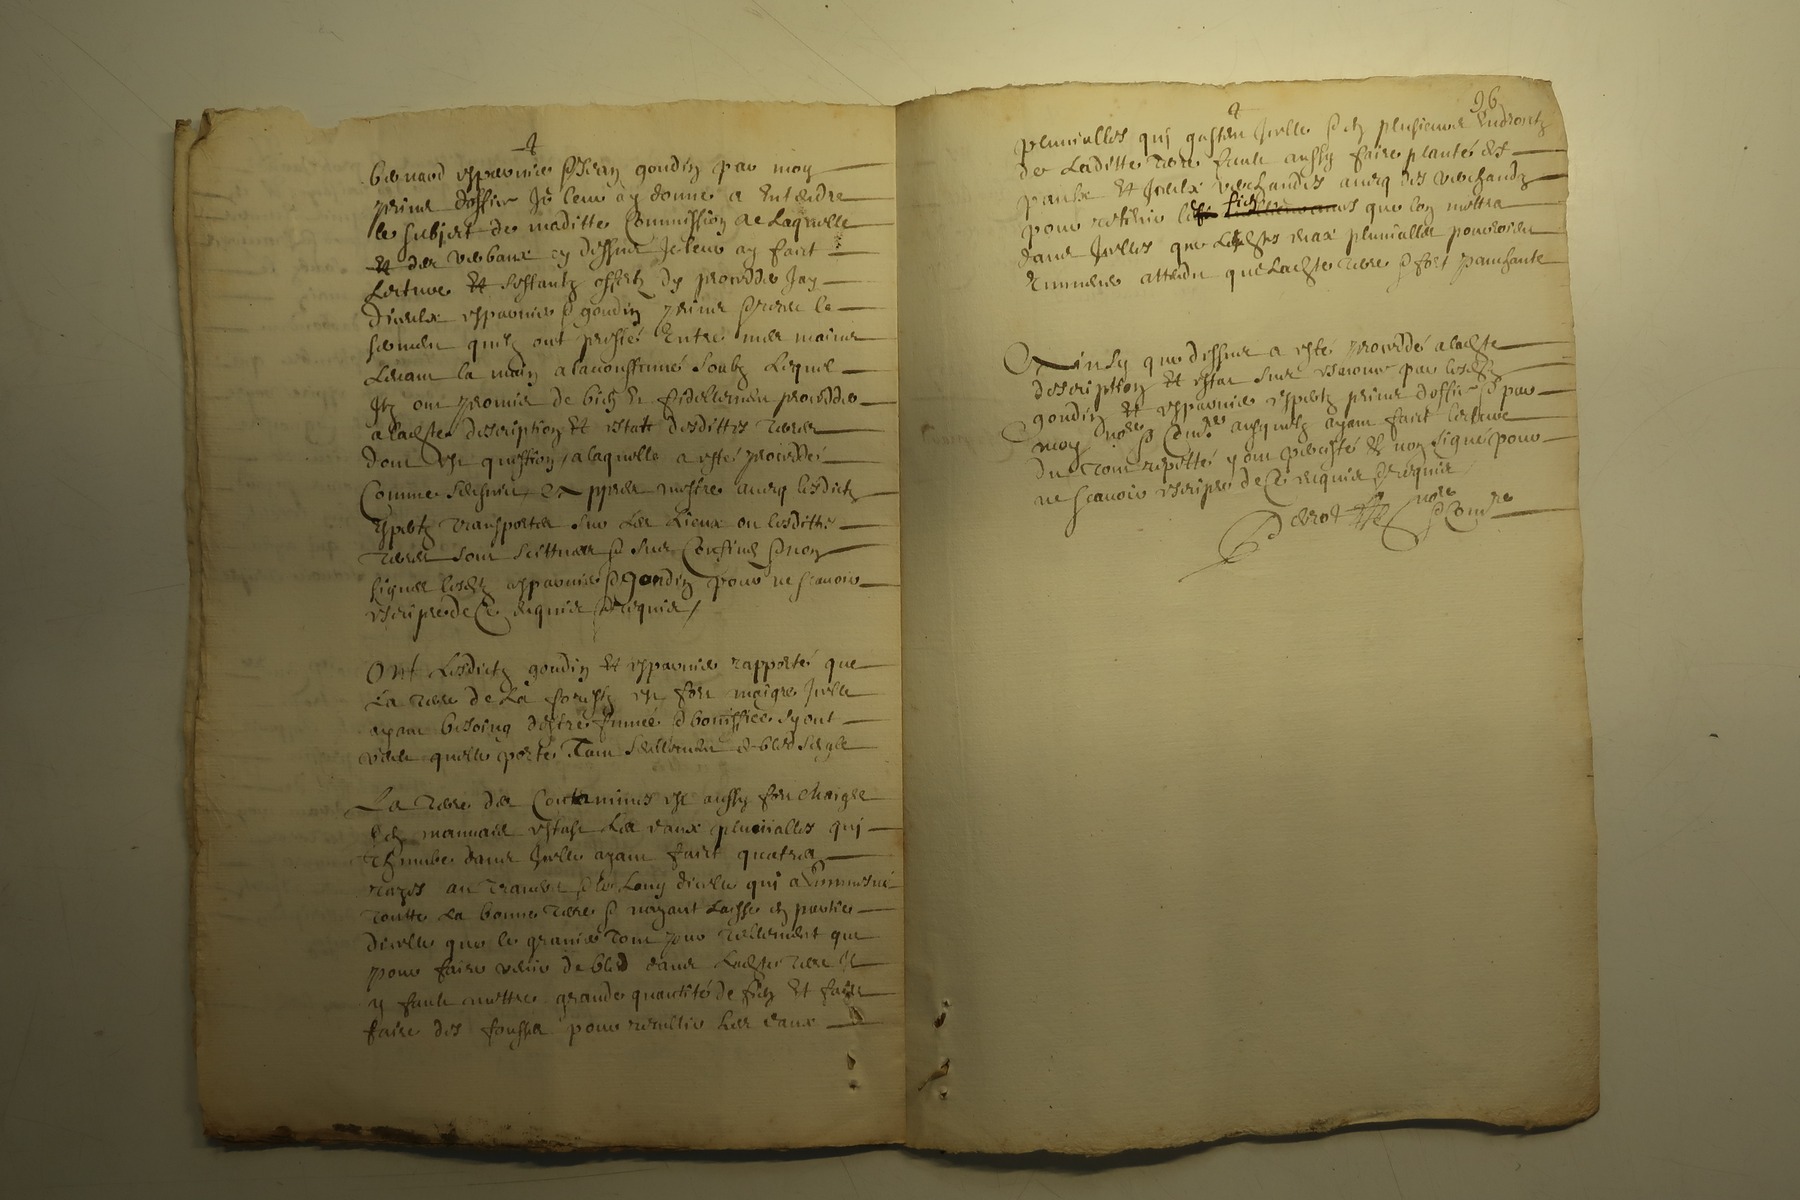 bernard esparvier & Jean goudin par moy
prins doffice Je leur ay donné a Entendre
le subject de maditte Commission de Laquelle
Et des verbaux cy dessus Je leur ay faict
Lecture Et sestantz offertz dy proceder Jay
diceulx esparvier & goudin prins & receu le
serment quilz ont presté Entre mes mains
Levant la main a laccoustumé soubz Lequel
Ilz ont promis de bien Et fidellement proceder
a ladite description Et estatt desdittes terres
dont est question / a laquelle a esté procedé
Comme sensuit Et appres mestre avecq lesdictz
expertz transporter sur les Lieux ou lesdittes
terres sont scittuees & sur Confins & non
signer lesdictz esparvier & goudin pour ne scavoir
escripre de Ce enquis & requis /
Ont Lesdictz goudin Et esparvier rapporté que
La terre de La forestz est fort maigre Icelle
ayant besoing destre fumée & bonniffiee syont
veu quelle porte tant seullement de bled seigle
La terre des Contamines est aussy fort chargee
Et en mauvais estast Les eaux pluvialles qui
tombe dans Icelle ayant faict quatres
razes au travers & le Long dicelle qui a Emmené
toutte La bonne terre & nayant Laisse en partie
dicelle que le gravier tout pur tellement que
pour faire venir de bled dans Ladite terre Il
y fault mettre grande quantité de fien Et faire
faire des fousses pour recullir les eaux
96
pluvialles qui gastent Icelle & en plusieurs Endroictz
de Laditte terre fault aussy faire planté des
paulx Et Iceulx verchander avecq des verchandz
pour retenir le fien que lon mettra
dans Icelles que Lesdites eaux pluvialles pourroient
Emmener attendu que Ladite terre & fort panchante
Ainsy que dessus a esté procedé a ladite
description Et estat sur escrout par lesdictz
goudin Et esparvier expertz prins doffice & par
moy no.re & Com.re ausquelz ayant faict lecture
du tout repetté y ont percisté & non signé pour
ne scavoir escripre de Ce enquis & requis /
Perrot no.re & Com.re